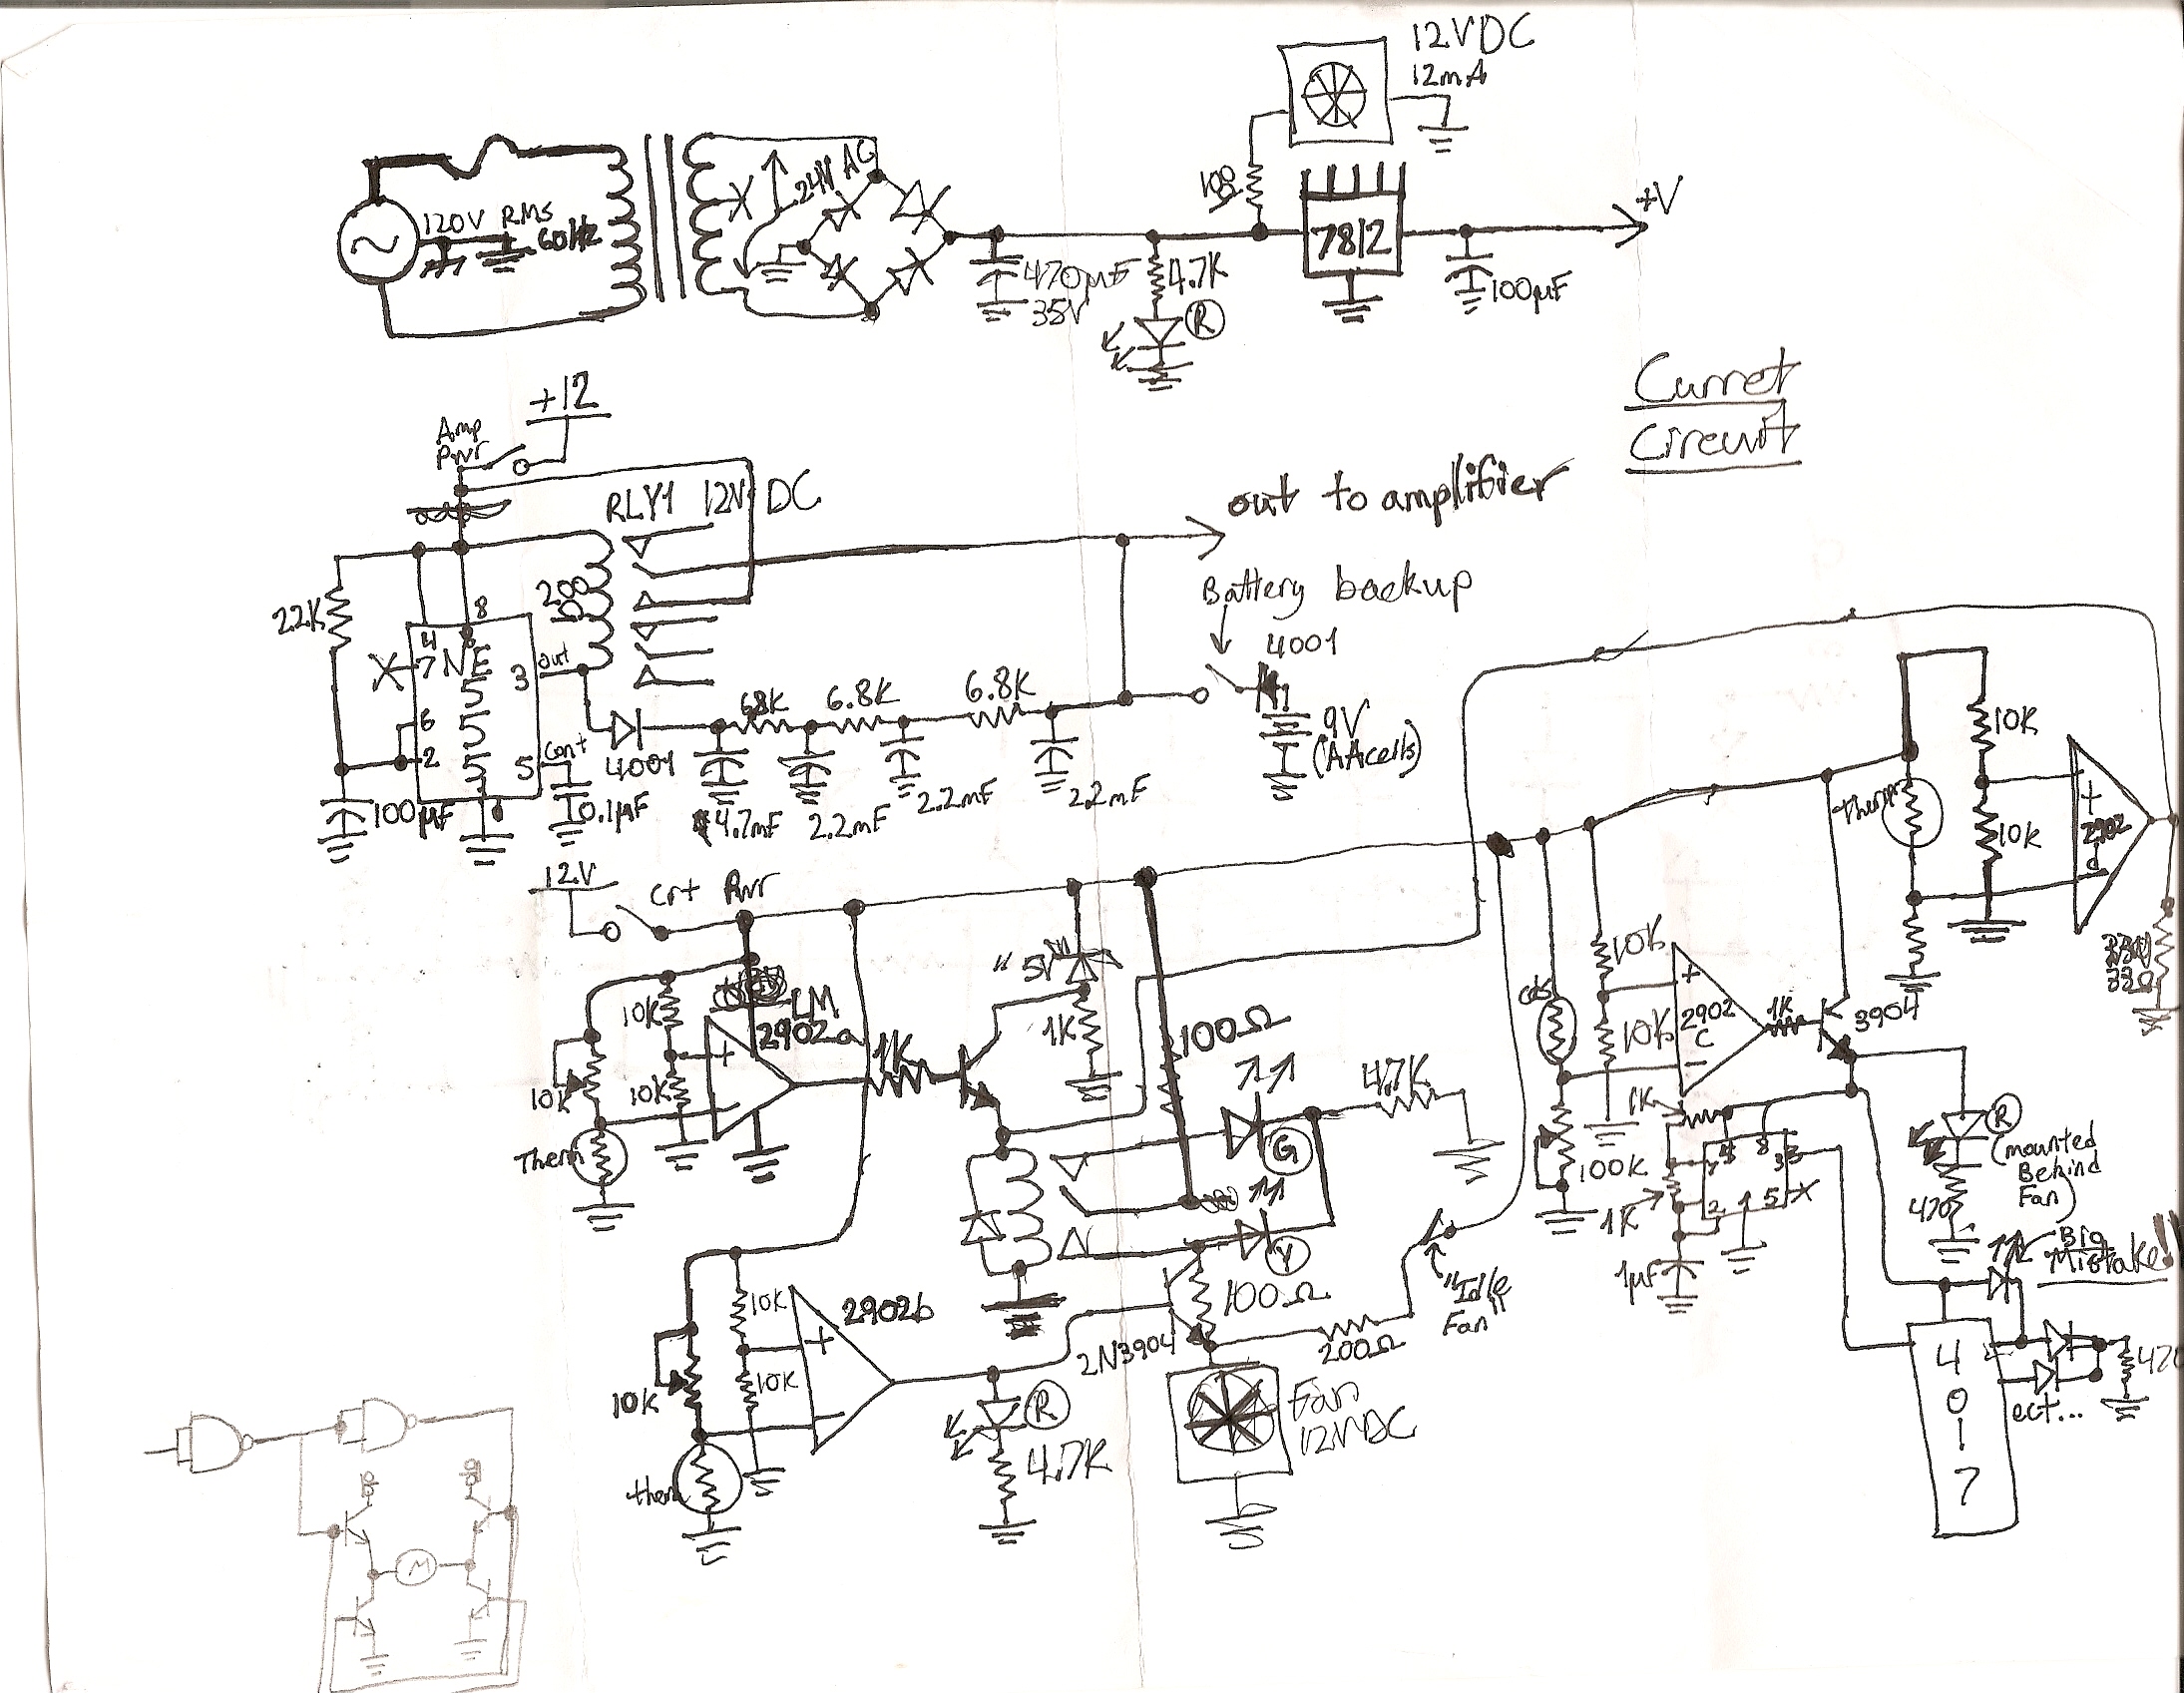 12VDC
12mA
24V AC
120V RMS
60Hz
100
7812
+V
470µF
35V
4.7K
R
100µF
Curret
Circuit
+12
Amp
Pwr
RLY1 12V DC
out to amplifier
Battery backup
4001
9V
(AAcells)
22K
200
Ω
4
8
7
NE
555
6
2
3
out
5
cont
100µF
0.1µF
4001
68K
6.8K
6.8K
4.7mF
2.2mF
2.2mF
2.2mF
12V
Crt Pwr
10K
10K
LM
2902a
+
-
10K
Therm
1K
5V
1K
100Ω
G
4.7K
Y
100Ω
2N3904
200Ω
"Idle
Fan"
Fan
12VDC
10K
10K
2902b
+
-
10K
therm
R
4.7K
cds
10K
10K
2902
C
+
-
1K
3904
100K
1K
1K
7
4
8
3
2
1
5
X
1µF
R
(mounted
Behind
Fan)
470
Big
Mistake!!
4
0
1
7
ect...
470
Therm
10K
10K
+
2902
d
33Ω
M